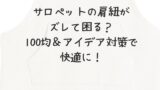 サロペットの肩紐が
ズレて困る？
100均＆アイデア対策で
快適に！